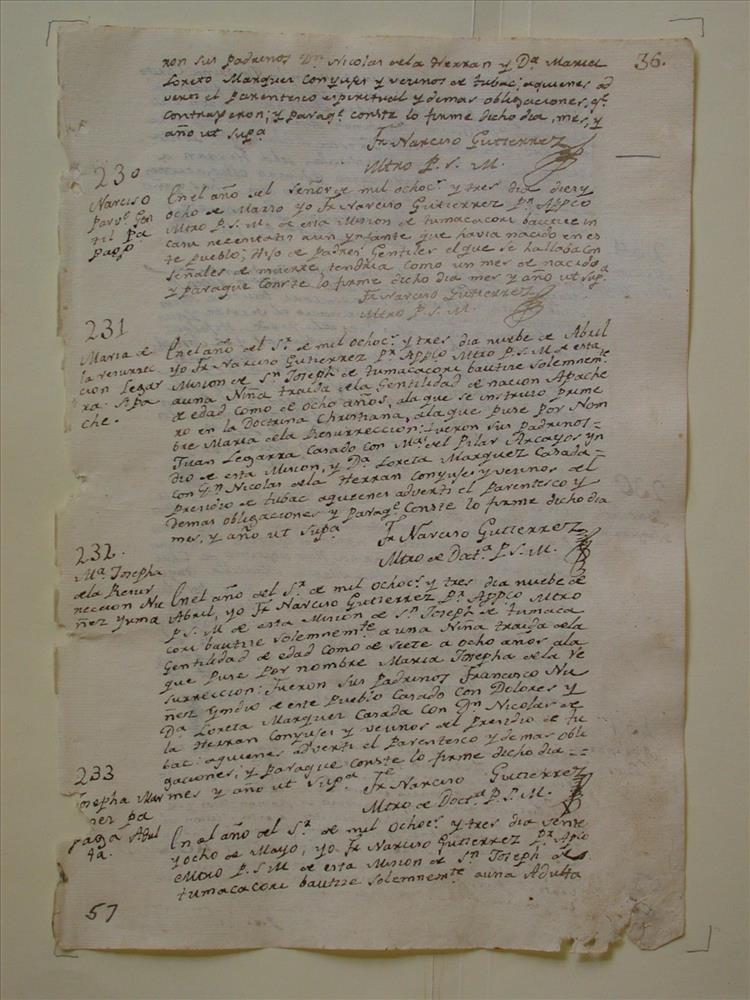 36.
ron sus padrinos Dn. Nicolas de la Herran y Da. Maria
Loreto Marquez Conyuges y vecinos de tubac; aquienes ad
verti el parentesco espiritual y demas obligaciones, qe.
contrageron; y paraqe. conste lo firme dicho dia, mes, y
año ut supa.
Fr. Narciso Gutierrez
Mtro P. S. M.
230
Narciso
parvo. Gen
til Pa
pago
En el año del Señor de mil ochocs. y tres dia diez y
ocho de Marzo yo Fr. Narciso Gutierrez Pr. Appco
Mtro P. S. M. de esta Mision de tumacacori bautize in
casu necesitatis aun ynfante que havia nacido en es
te pueblo; Hijo de padres Gentiles el que se hallaba con
señales de muerte, tendria como un mes de nacido
y paraque conste lo firme dicho dia mes y año ut supa.
Fr. Narciso Gutierrez
Mtro P. S. M.
231
Maria de
la resurrec
cion Legar
ra. Apa
che.
En el año del Sr. de mil ochocs. y tres dia nuebe de Abril
yo Fr. Narciso Gutierrez Pr. Appco Mtro P. S. M. de esta
Mision de Sn. Joseph de tumacacori bautize solemnemte.
auna Niña traida de la Gentilidad de nacion Apache
de edad como de ocho años, ala que se instruio prime
ro en la Doctrina Christiana, alaque puse por Nom
bre Maria dela Resurreccion: fueron sus padrinos =
Juan Legarra Casado con Ma. del Pilar Arcayos yn
dio de esta Mision, y Da. Loreta Marquez Casada =
con Dn. Nicolas dela Herran Conyuges y vecinos del
Presidio de tubac aquienes adverti el parentesco y
demas obligaciones y paraqe. Conste lo firme dicho dia
mes, y año ut supa.
Fr. Narciso Gutierrez
Mtro de Docta. P. S. M.
232.
Ma. Josepha
dela Resur
reccion Nu
ñez yuma
En el año del Sr. de mil ochocs. y tres dia nuebe de
Abril, yo Fr. Narciso Gutierrez Pr. Appco Mtro
P. S. M de esta Mision de Sn. Joseph de tumaca
cori bautize solemnemte. a una Niña traida dela
Gentilidad de edad como de siete a ocho años ala
que puse por nombre Maria Josepha dela Re
surreccion: fueron sus Padrinos Francisco Nu
ñez yndio de este Pueblo Casado con Dolores y
Da. Loreta Marquez Casada con Dn. Nicolas de
la Herran Conyuges y vecinos del Presidio de tu
bac: aquienes adverti el Parentesco y demas obli
gaciones; y paraque conste lo firme dicho dia =
mes y año ut supa.
Fr. Narciso Gutierrez
Mtro de Docta. P. S. M.
233
Josepha Mar
nez pa
paga Adul
ta.
En el año del Sr. de mil ochocs. y tres dia vente
y ocho de Mayo, yo Fr. Narciso Gutierrez Pr. Apco
Mtro P. S. M de esta Mision de Sn. Joseph de
tumacacori bautize solemnemte. auna Adulta
57